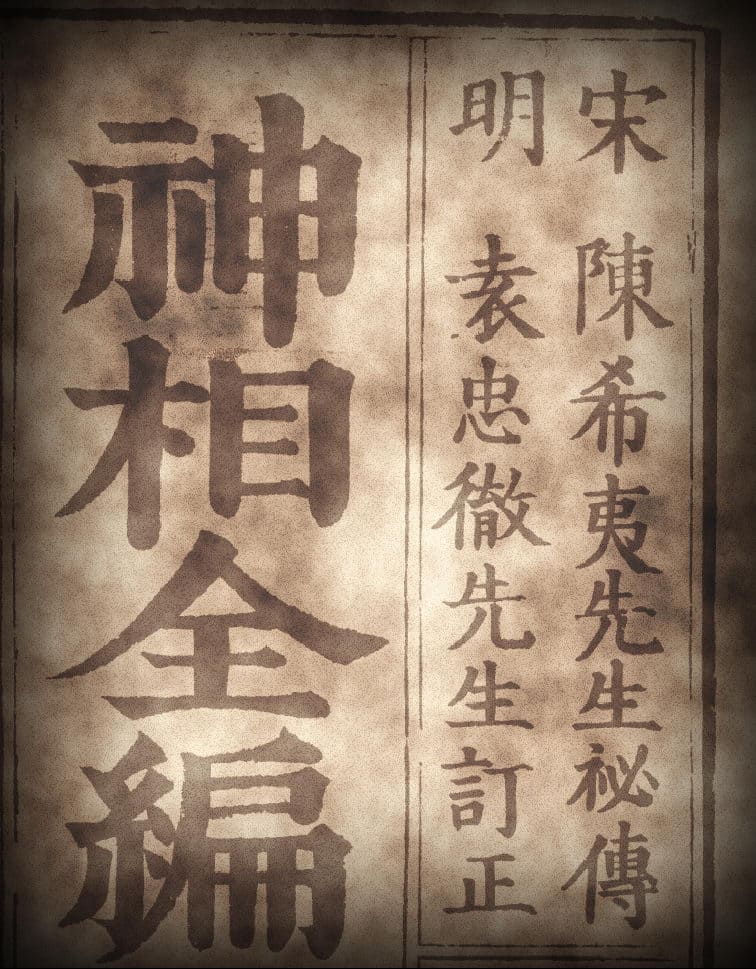 宋 陳希夷先生祕傳
明 袁忠徹先生訂正
神相全編